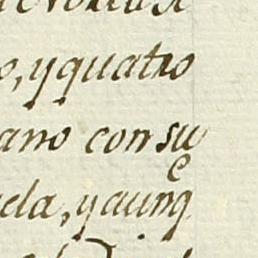 o, y quatro
ano con su
ela, y aunq
e